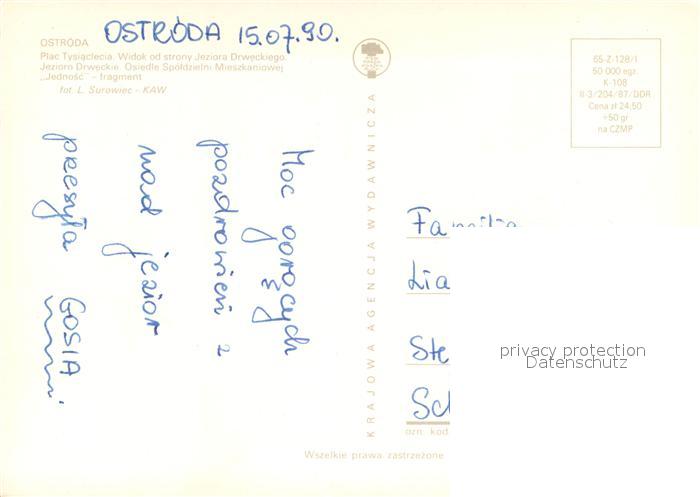 OSTRÓDA 15.07.90.
OSTRÓDA
Plac Tysiąclecia. Widok od strony Jeziora Drwęckiego.
Jezioro Drwęckie. Osiedle Spółdzielni Mieszkaniowej
„Jedność" - fragment
fot. L. Surowiec - KAW
65-Z-128/I
50 000 egz.
K-108
II-3/204/87/DDR
Cena zł 24,50
+50 gr
na CZMP
Moc gorących
pozdrowień z
nad jezior
przesyła GOSIA
KRAJOWA AGENCJA WYDAWNICZA
Familie
Lia
Ste
Sch
ozn. kod
Wszelkie prawa zastrzeżone
privacy protection
Datenschutz